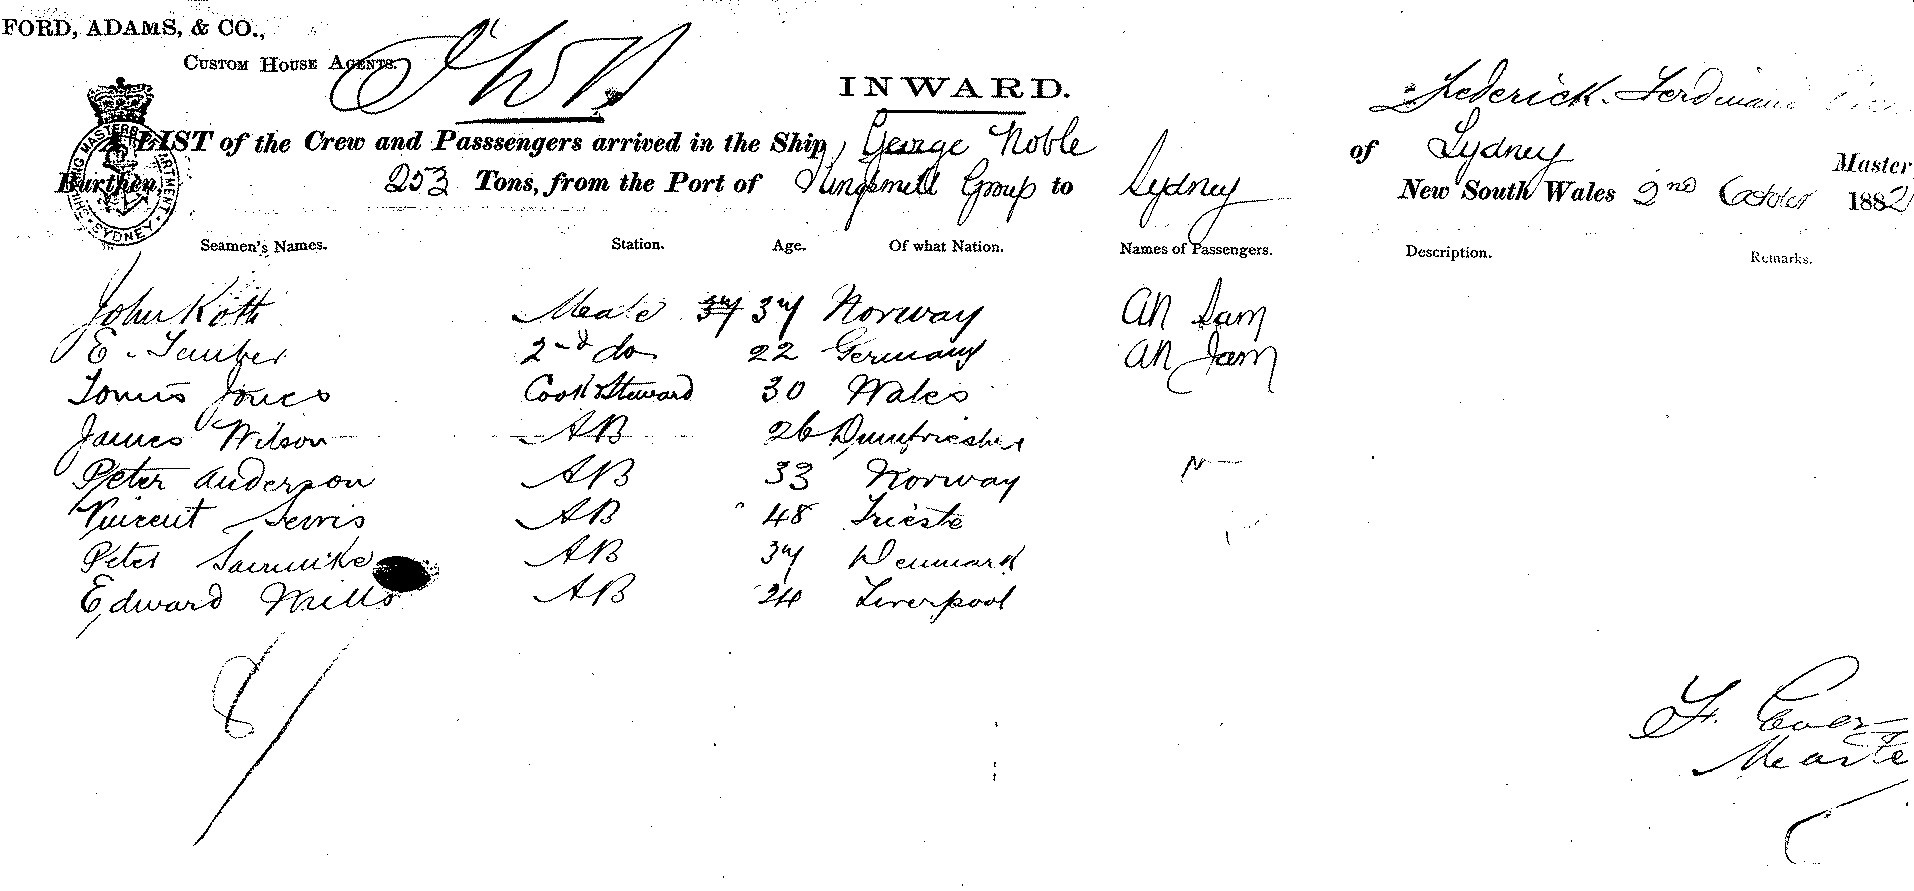 FORD, ADAMS, & CO.,
CUSTOM HOUSE AGENTS.
INWARD.
Frederick Ferdinand
A LIST of the Crew and Passsengers arrived in the Ship George Noble of Sydney Master
Burthen, 253 Tons, from the Port of Kingsmill Group to Sydney New South Wales 2nd October 1882
SHIPPING MASTER DEPARTMENT SYDNEY
Seamen's Names. Station. Age. Of what Nation. Names of Passengers. Description. Remarks.
John Koth Mate 37 37 Norway Ah Sam
E. 2nd do 22 Germany Ah Jam
Jones Cook & Steward 30 Wales
James Wilson AB 26 Dumfrieshire
Peter Anderson AB 33 Norway
Vincent AB 48 Trieste
Peter AB 37 Denmark
Edward Mills AB 24 Liverpool
8
F.
Master